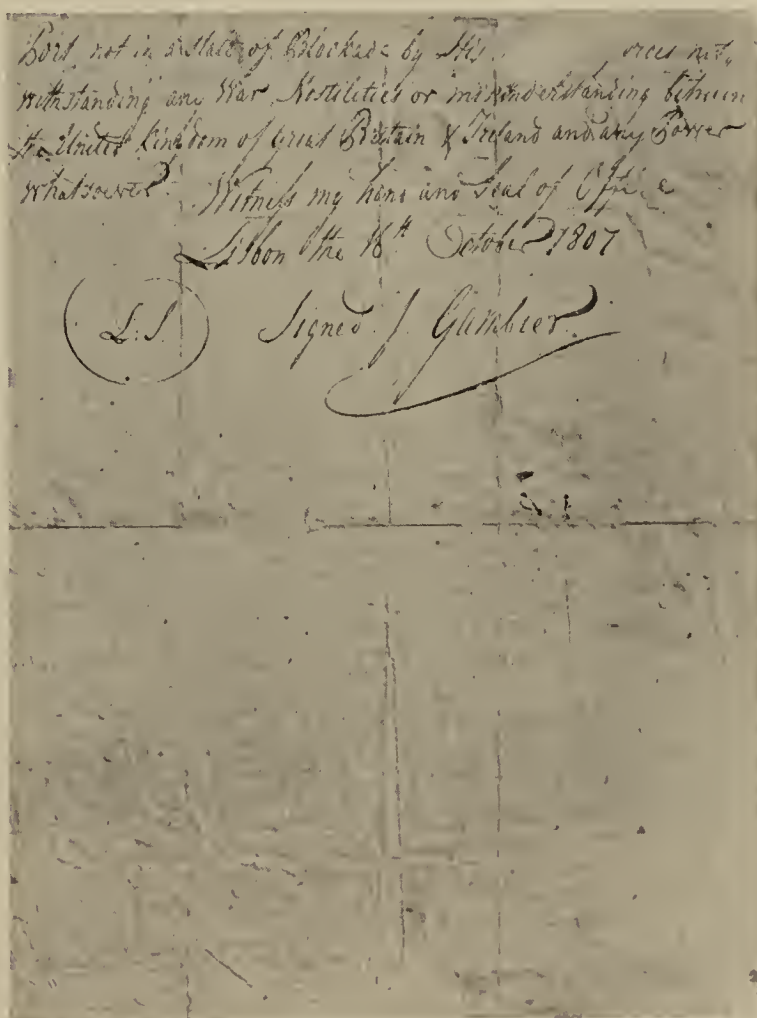 Port not in a state of Blockade by His orces not,
withstanding any War Hostilities or misunderstanding between
the United Kingdom of Great Britain & Ireland and any Power
whatsoever. Witness my hand and Seal of Office
Lisbon the 16th October 1807
L.S. Signed J. Gambier